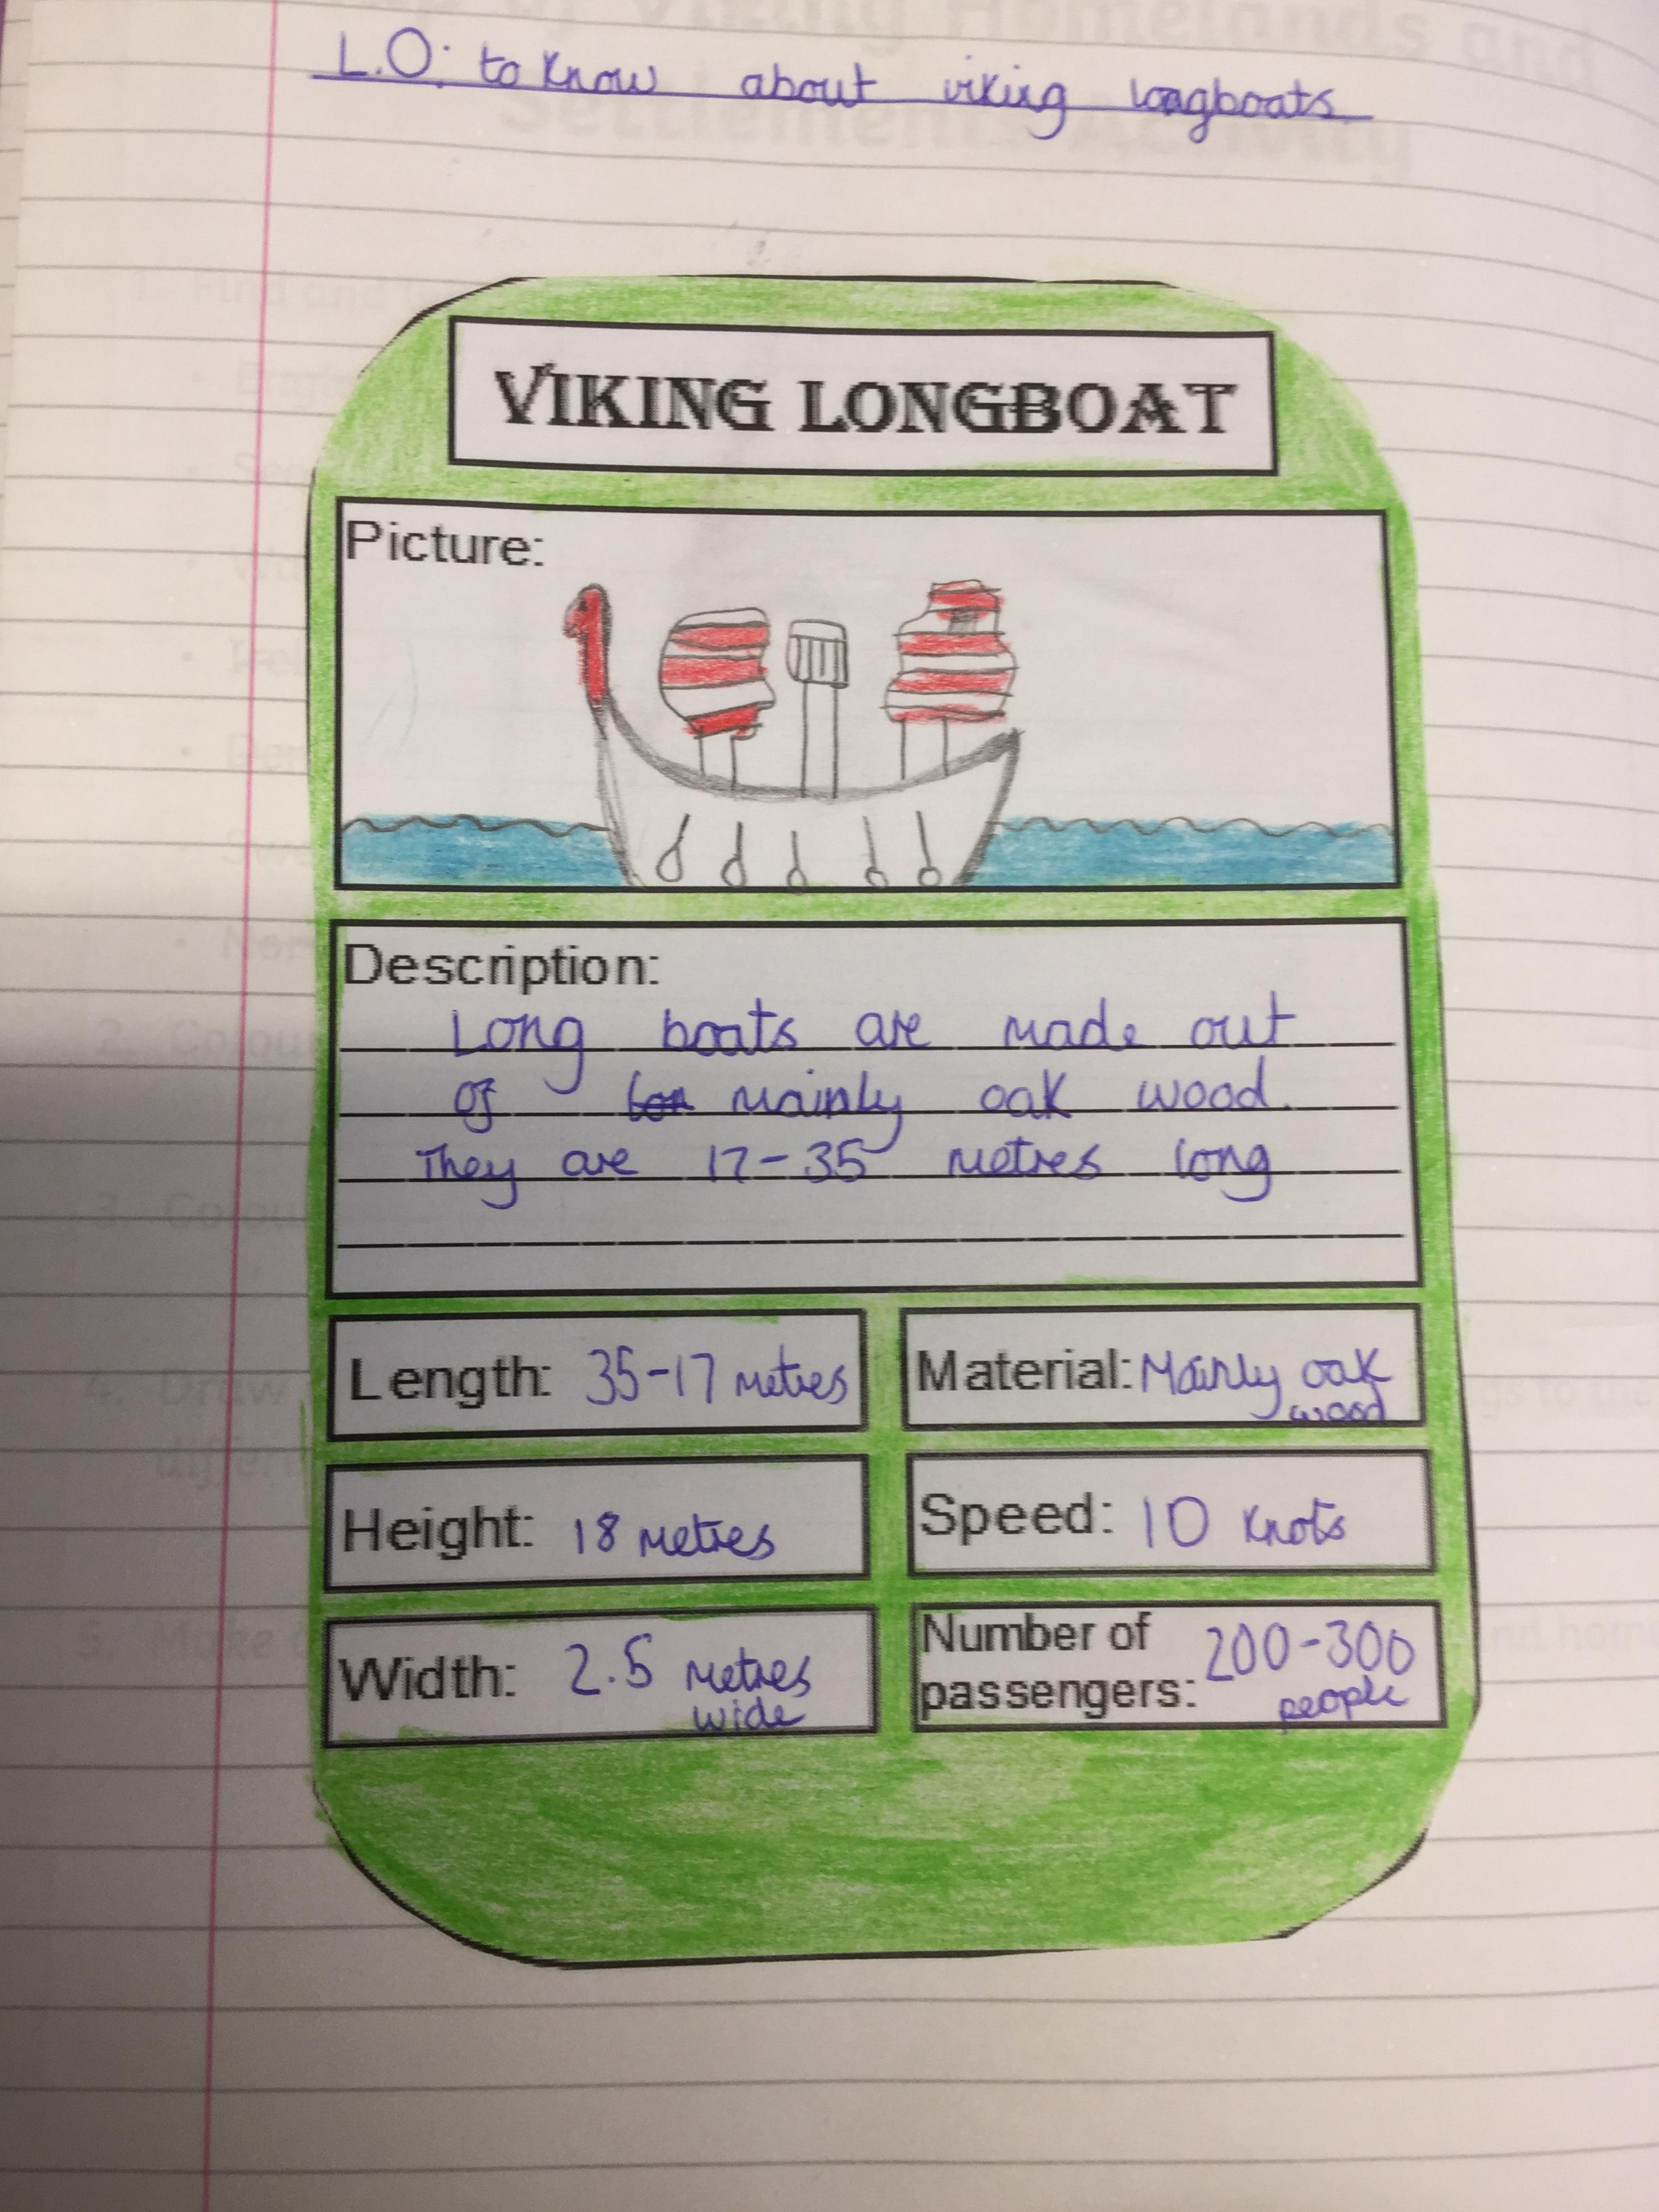 L.O: to know about viking longboats.
VIKING LONGBOAT
Picture:
Description:
Long boats are made out
of mainly oak wood.
They are 17-35 metres long
Length: 35-17 metres
Material: Mainly oak
wood
Height: 18 metres
Speed: 10 knots
Width: 2.5 metres
wide
Number of
passengers: 200-300
people